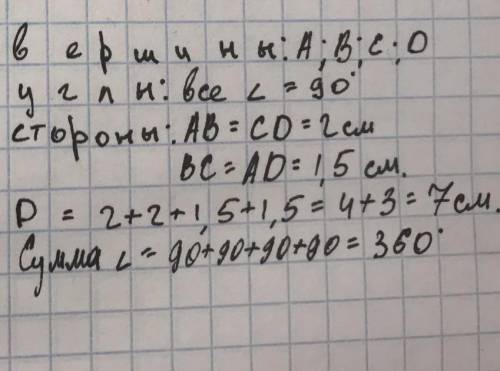 вершины: A; B; C; D
углы: все ∠ = 90°
стороны: AB = CD = 2 см
BC = AD = 1,5 см.
P = 2+2+1,5+1,5 = 4+3 = 7 см.
Сумма ∠ = 90+90+90+90 = 360°